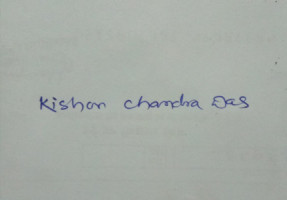 Kishor Chandra Das